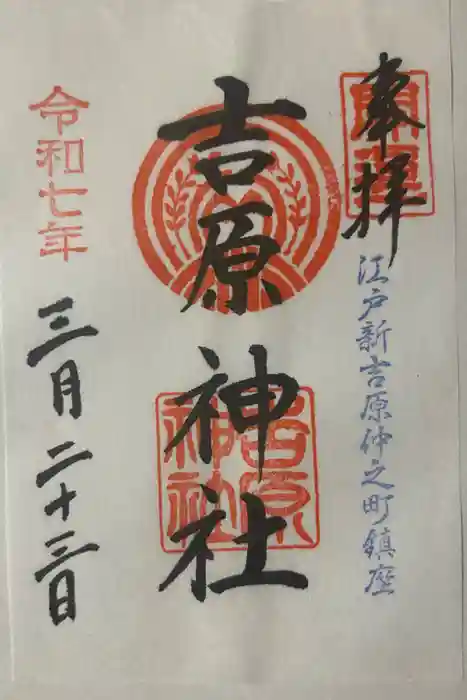 奉拝
開運
江戸新吉原仲之町鎮座
吉原神社
吉原神社
令和七年
三月二十三日